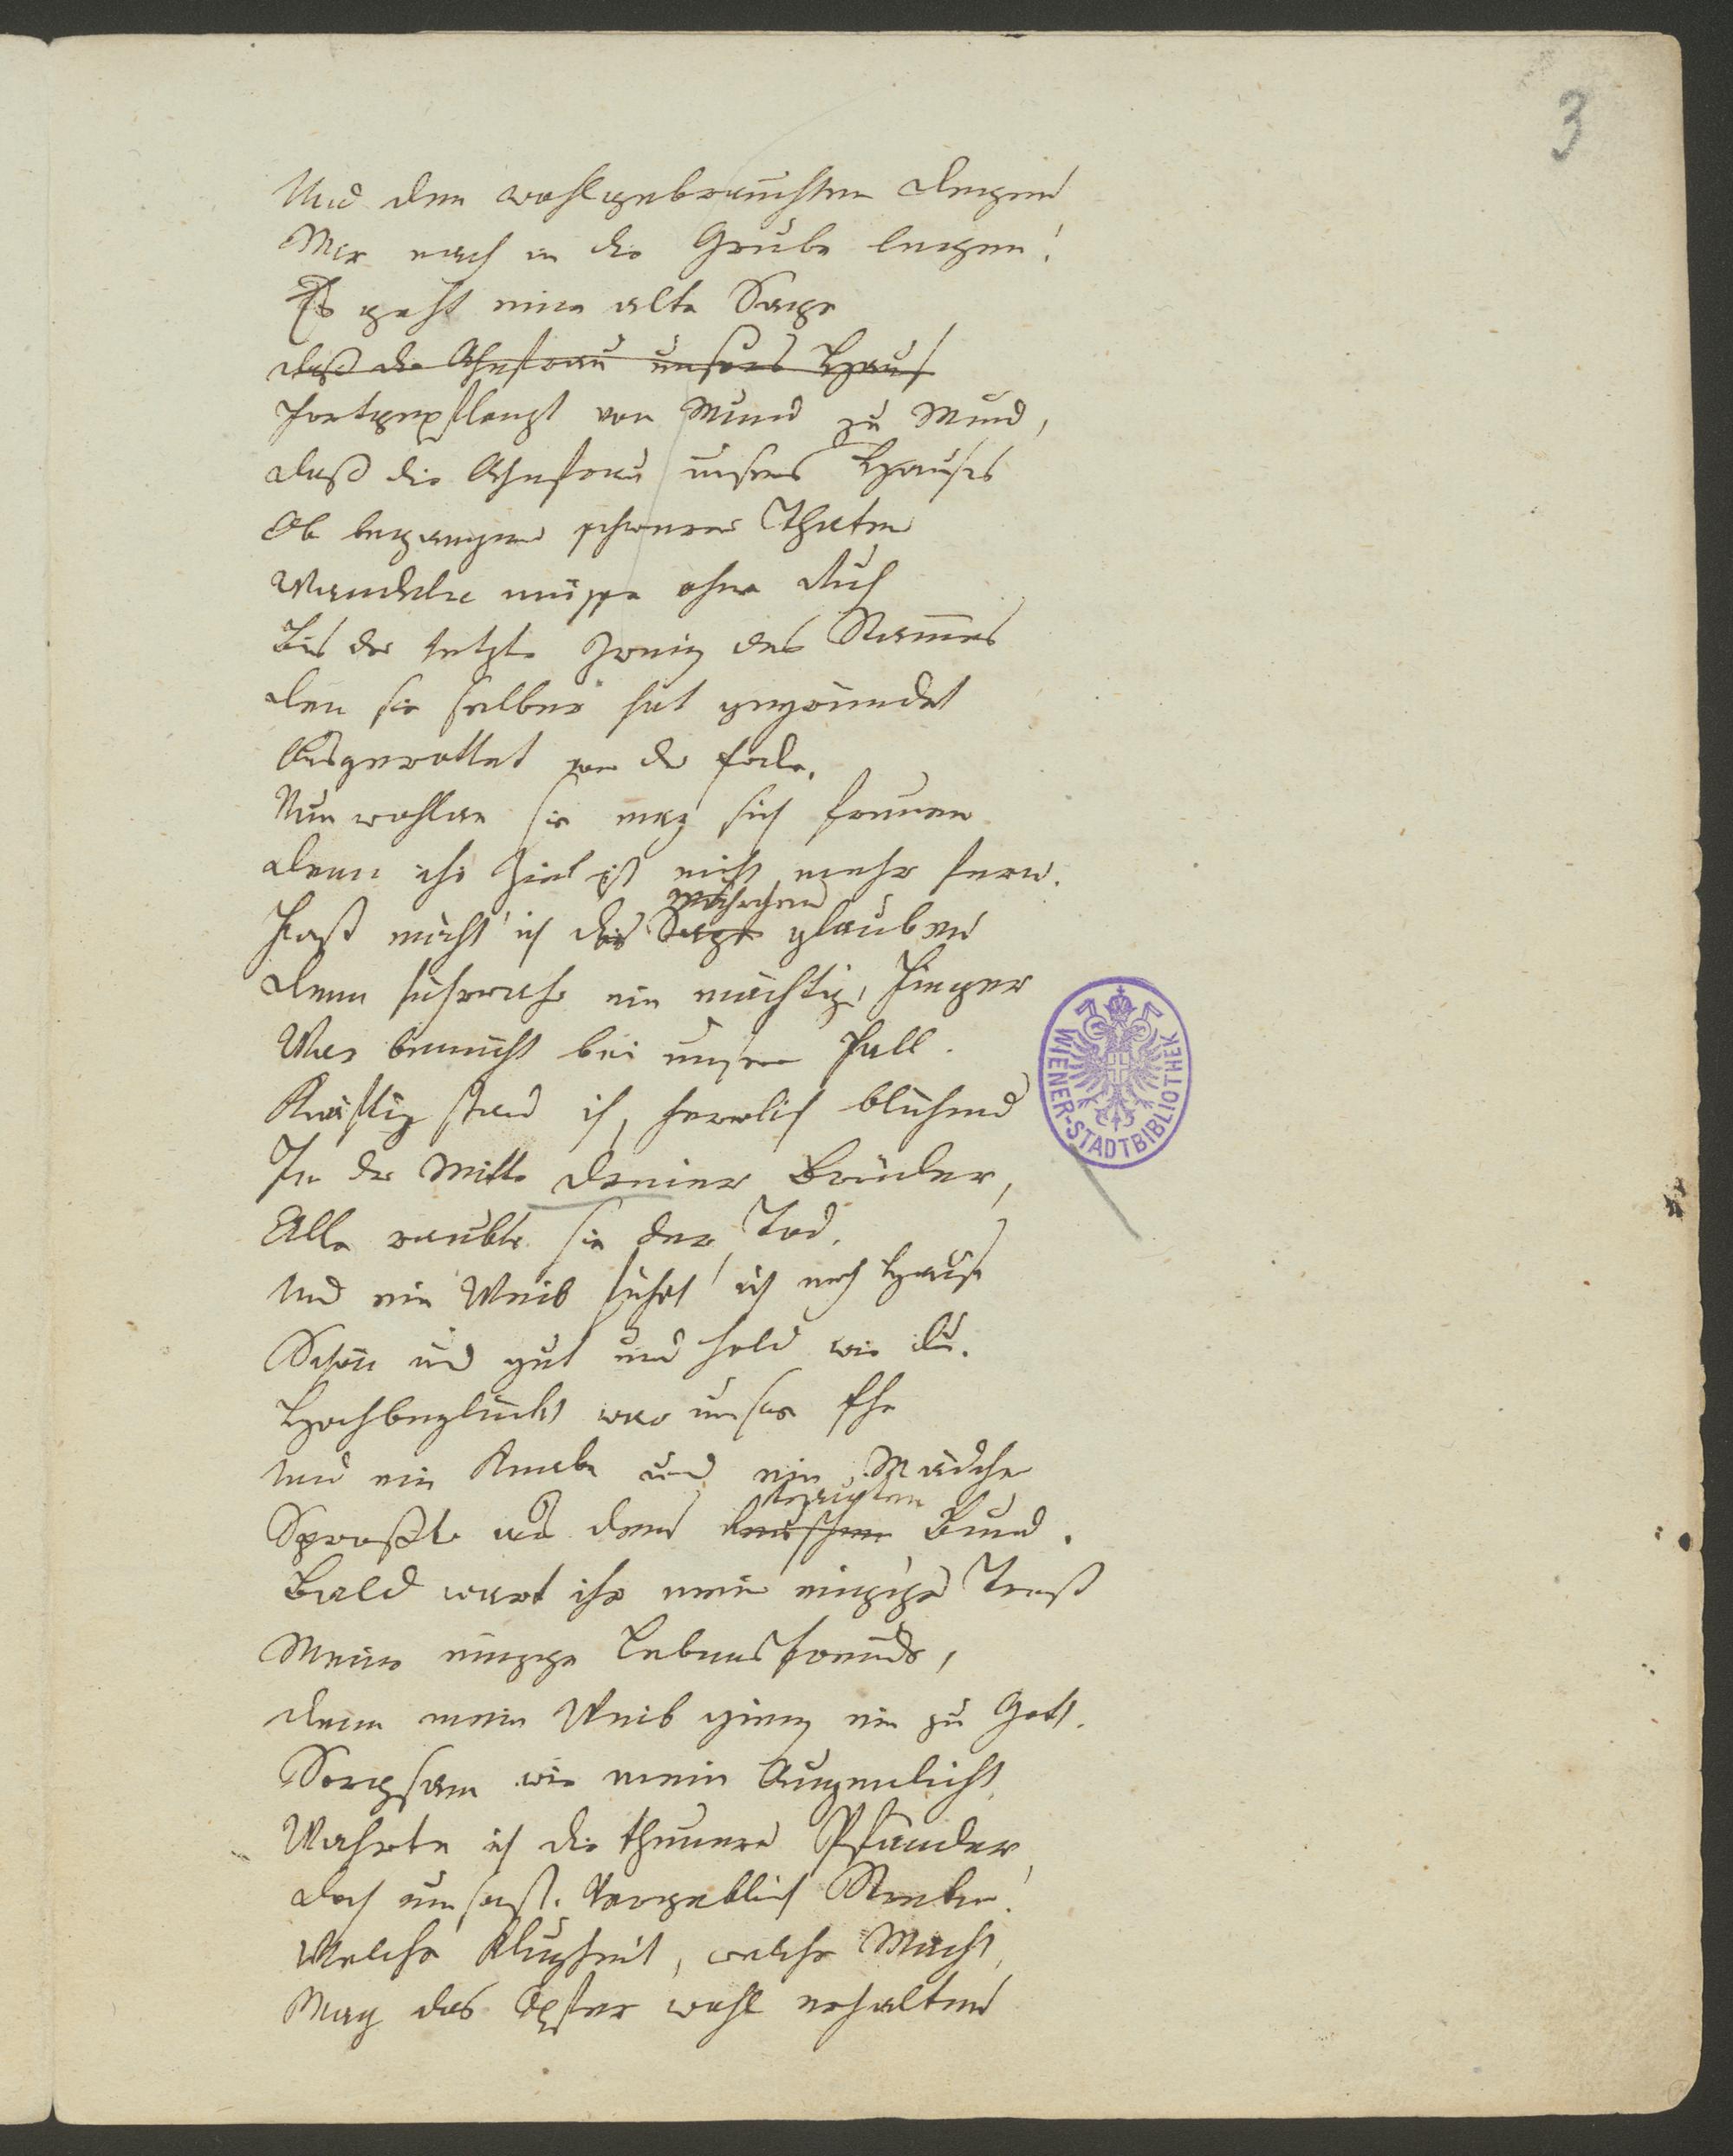 3
Und den wohlgebrauchten Degen
Mir nach in die Grube legen!
Es geht eine alte Sage
daß die Ahnfrau unsers Haus
Fortgepflanzt von Mund zu Mund,
daß die Ahnfrau unsers Hauses
Ob begangner schwerer Thaten
Wandeln müsse ohne Ruh
Bis der letzte Zweig des Stammes
den sie selber hat gegründet
Ausgerottet von der Erde.
Nun wohlan sie mag sich freuen
denn ihr Ziel ist nicht mehr fern.
Mährchen
Fast möcht' ich das Sage glauben
denn fürwahr ein mächtig' Finger
War bemüht bei unserm Fall.
Kräftig stand ich, herrlich blühend
In der Mitte dreier Brüder,
Alle raubte sie der Tod.
Und ein Weib führt' ich nach Haus
Schön und gut und hold wie du.
Hochbeglückt war unsre Ehe
Und ein Knabe und ein Mädchen
Sproßte aus dem keuschen Bund.
Bald wart ihr mein einziger Trost
Meine einzge Lebensfreude,
denn mein Weib ging ein zu Gott.
Sorgsam wie mein Augenlicht
Wahrte ich die theuern Pfänder
doch umsonst. Vergeblich Streben!
Welche Klugheit, welche Macht,
Mag das Opfer wohl erhalten
WIENER-STADTBIBLIOTHEK